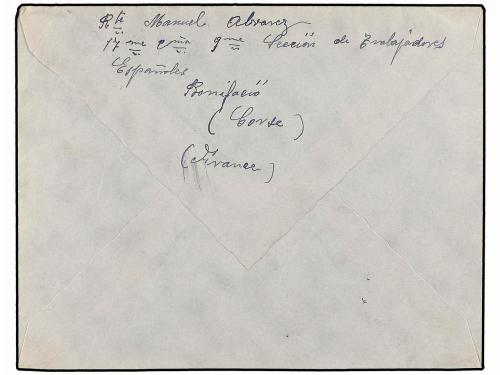 Rte Manuel Alvarez
17me Cña 9me Sección de Trabajadores
Españoles
Bonifació
(Corse)
(France)